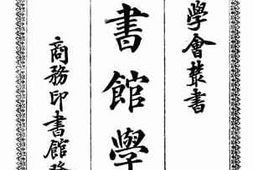 學會叢書
書館學
商務印書館發